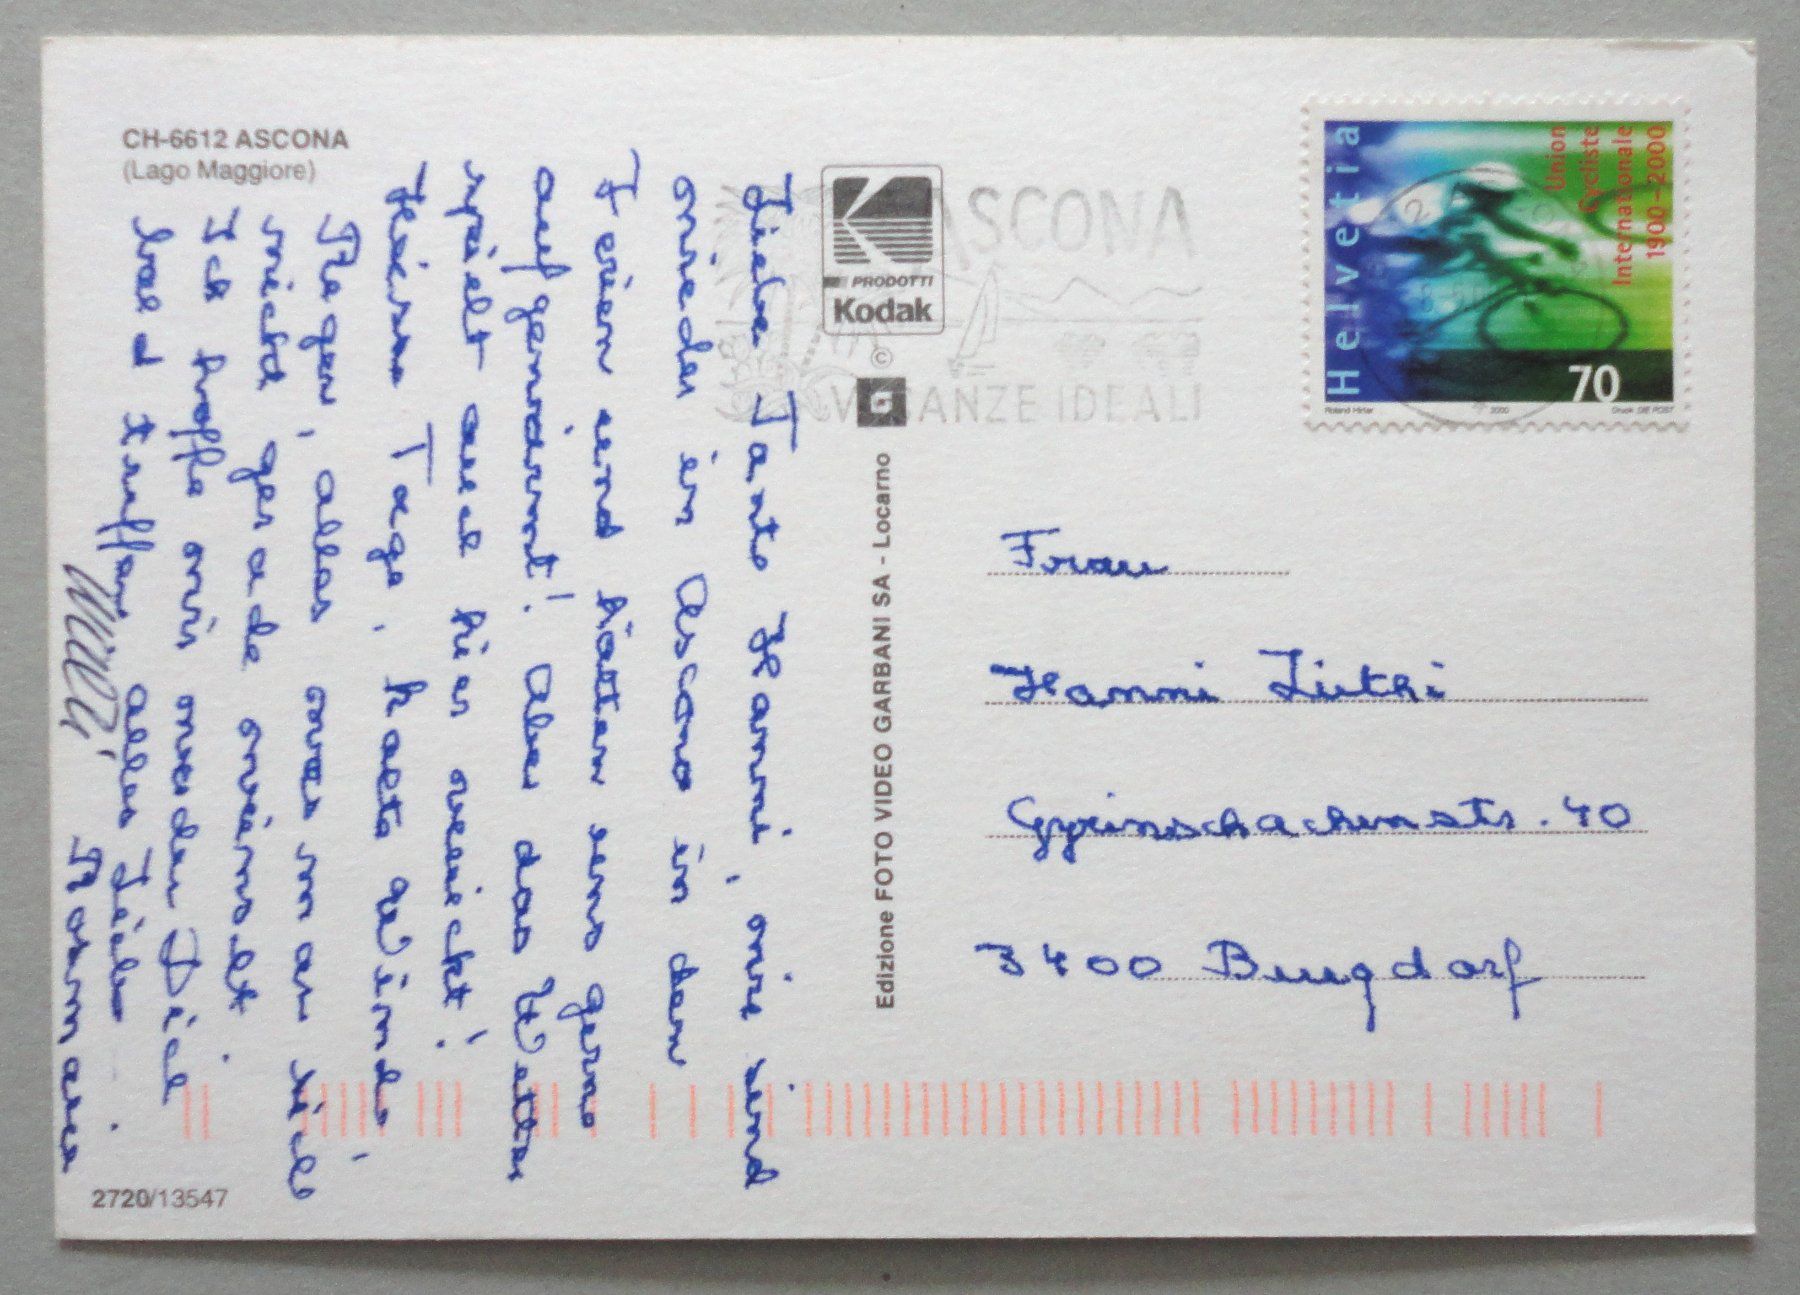 CH-6612 ASCONA
(Lago Maggiore)
Liebe Tante Hanni, wir sind
wieder in Ascona in den
Ferien und hätten uns gerne
aufgewärmt! Aber das Wetter
spielt auch hier verückt!
Heisse Tage, kalte Winde,
Regen, alles was man sich
nicht gerade wünscht.
Ich hoffe wir werden Dich
bald treffen alles Liebe
Rosmarie
Willi
PRODOTTI
Kodak
©
G
Edizione FOTO VIDEO GARBANI SA - Locarno
ASCONA
VACANZE IDEALI
Helvetia
Union
Cycliste
Internationale
1900-2000
70
Roland Hirter
2000
Druck: DIE POST
Frau
Hanni Lüthi
Gyrischachenstr. 40
3400 Burgdorf
2720/13547